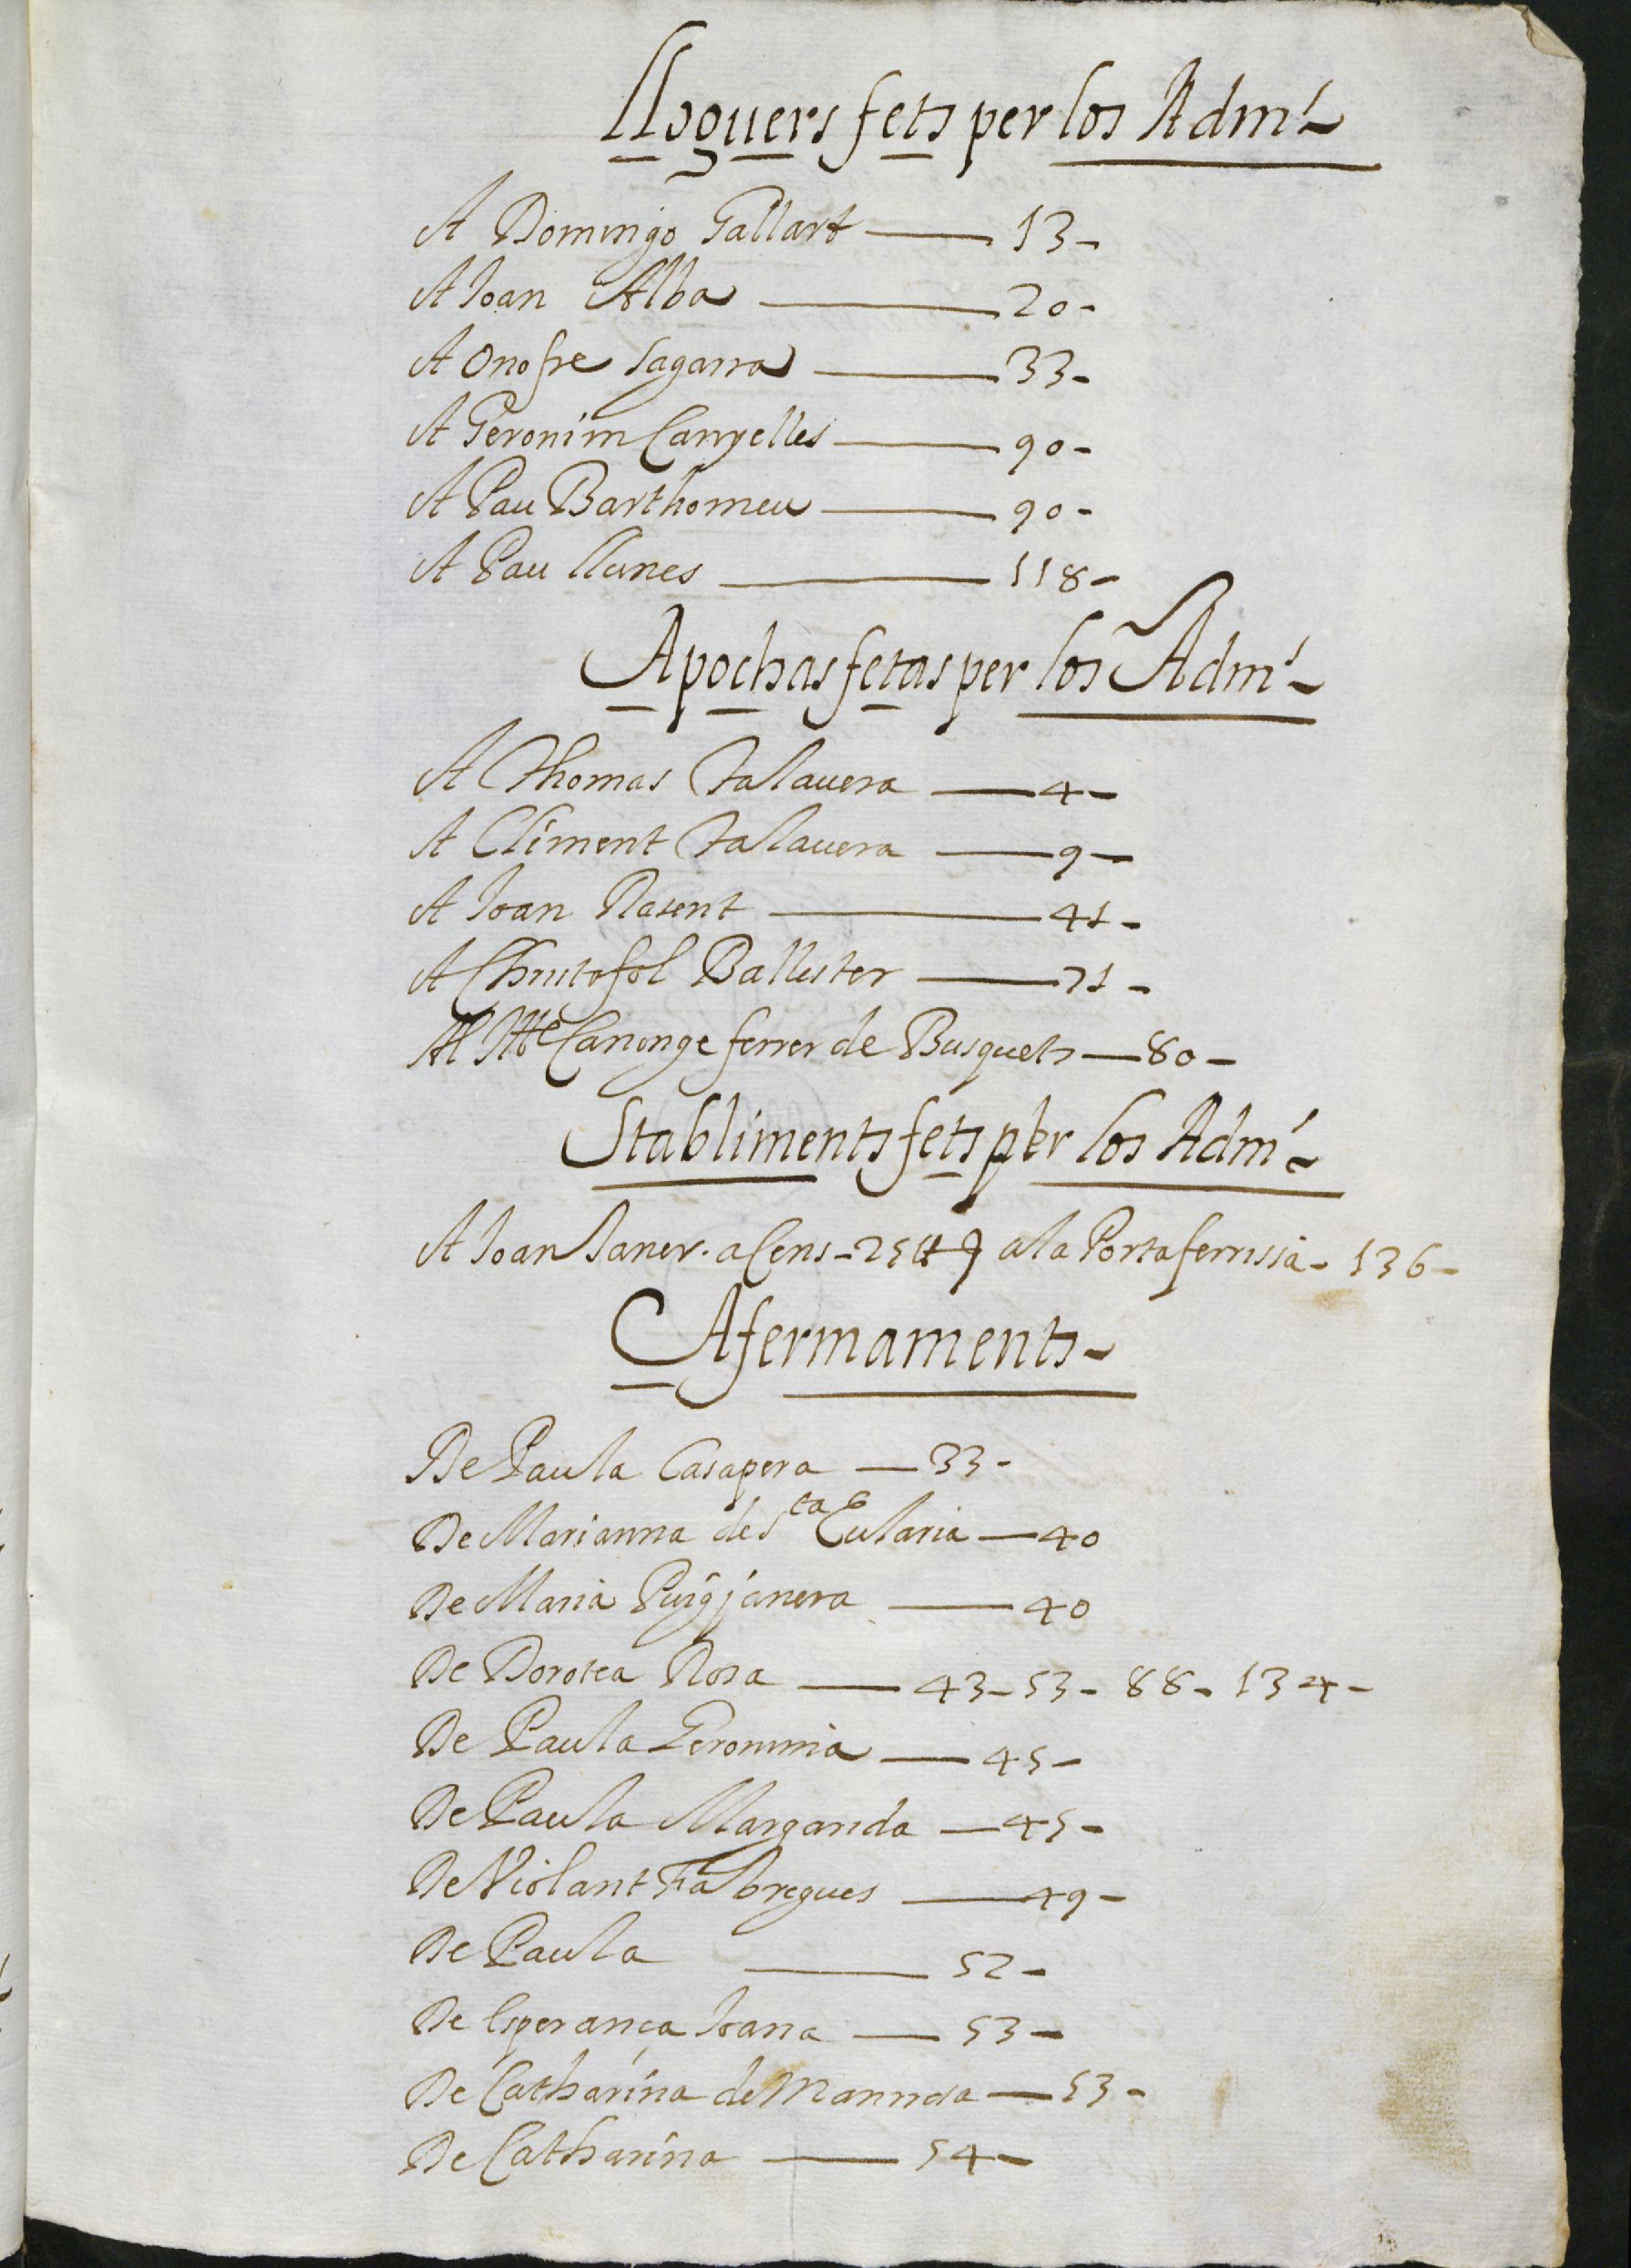 Lloguers fets per los Adm.ʳˢ
A Domingo Gallart — 13 -
A Joan Alba — 20 -
A Onofre Sagarra — 33 -
A Geronim Canyelles — 90 -
A Pau Barthomeu — 90 -
A Pau Llunes — 118 -
Apochas fetas per los Adm.ʳˢ
A Thomas Talavera — 4 -
A Climent Talavera — 9 -
A Joan Rasent — 41 -
A Christofol Ballester — 71 -
Al Canonge ferrer de Busquets — 80 -
Stabliments fets per los Adm.ʳˢ
A Joan Janer. a Cens - 25 a la Portaferrissa - 136 -
Afermaments -
De Paula Casapera — 33 -
De Marianna de Sta Eularia — 40
De Maria Puigjanera — 40
De Dorotea Rosa — 43 - 53 - 88 - 134 -
De Paula Geronima — 45 -
De Paula Margarida — 45 -
De Violant Fabregues — 49 -
De Paula — 52 -
De Esperança Joana — 53 -
De Catharina de Manresa — 53 -
De Catharina — 54 -